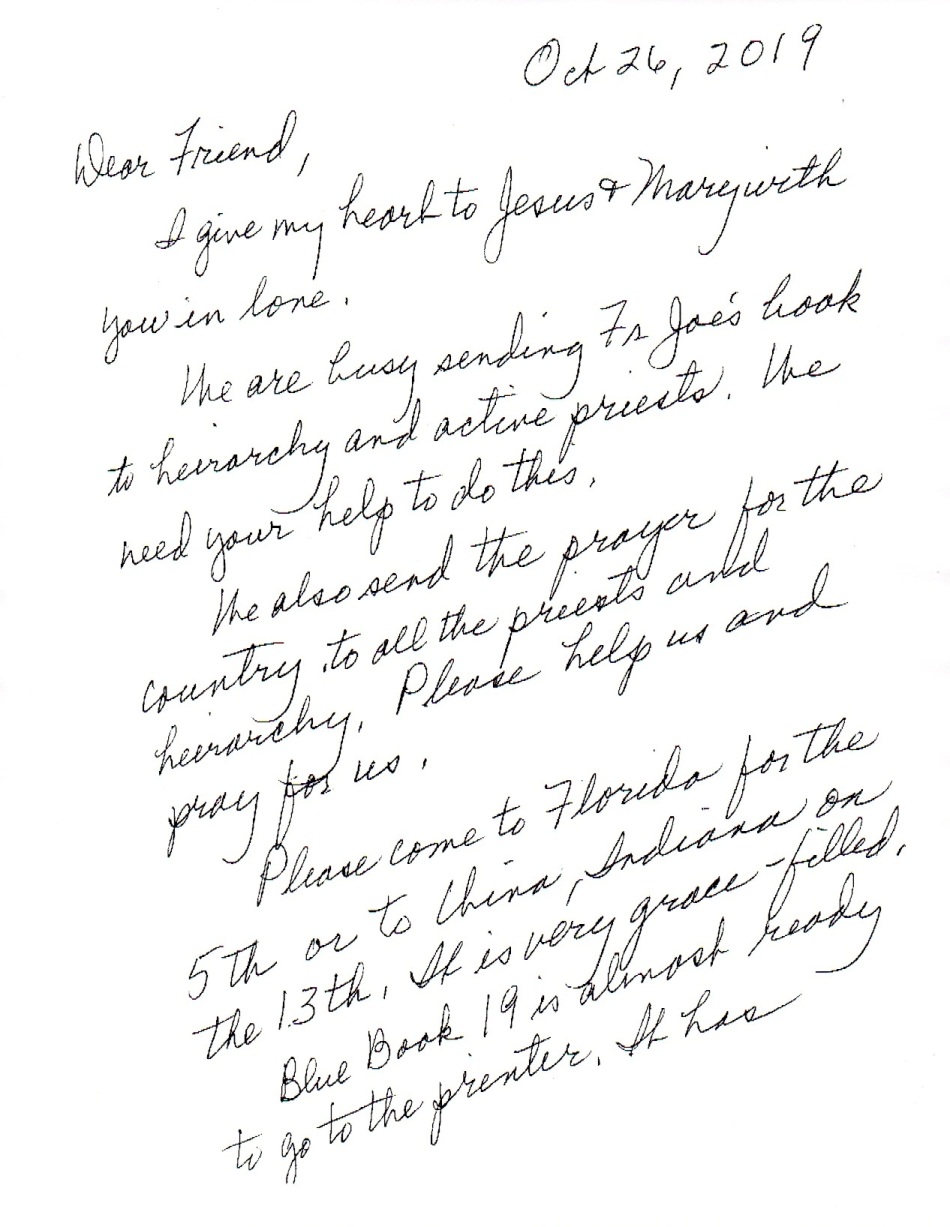 Oct 26, 2019
Dear Friend,
I give my heart to Jesus & Mary with
you in love.
We are busy sending Fr Joe's book
to heirarchy and active priests. We
need your help to do this.
We also send the prayer for the
country to all the priests and
heirarchy. Please help us and
pray for us.
Please come to Florida for the
5th or to China, Indiana on
the 13th. It is very grace-filled.
Blue Book 19 is almost ready
to go to the printer. It has